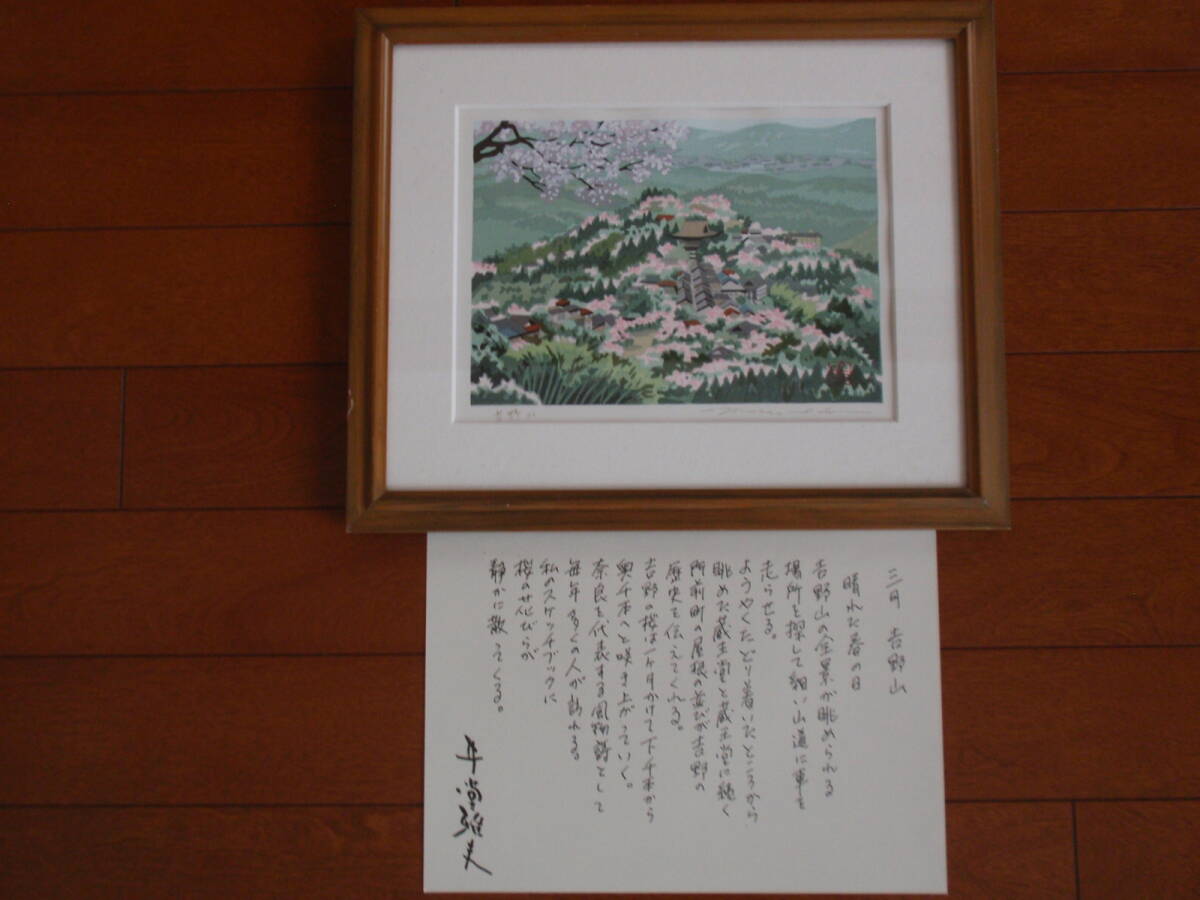 吉野山
三月 吉野山
晴れた春の日
吉野山の全景が眺められる
場所を探して細い山道に車を
走らせる。
ようやくたどり着いたところから
眺めた蔵王堂と蔵王堂に続く
門前町の屋根の並びが吉野の
歴史を伝えてくれる。
吉野の桜は1ヶ月かけて下千本から
奥千本へと咲き上がっていく。
奈良を代表する風物詩として
毎年多くの人が訪れる。
私のスケッチブックに
桜の花びらが
静かに散ってくる。
井堂雅夫